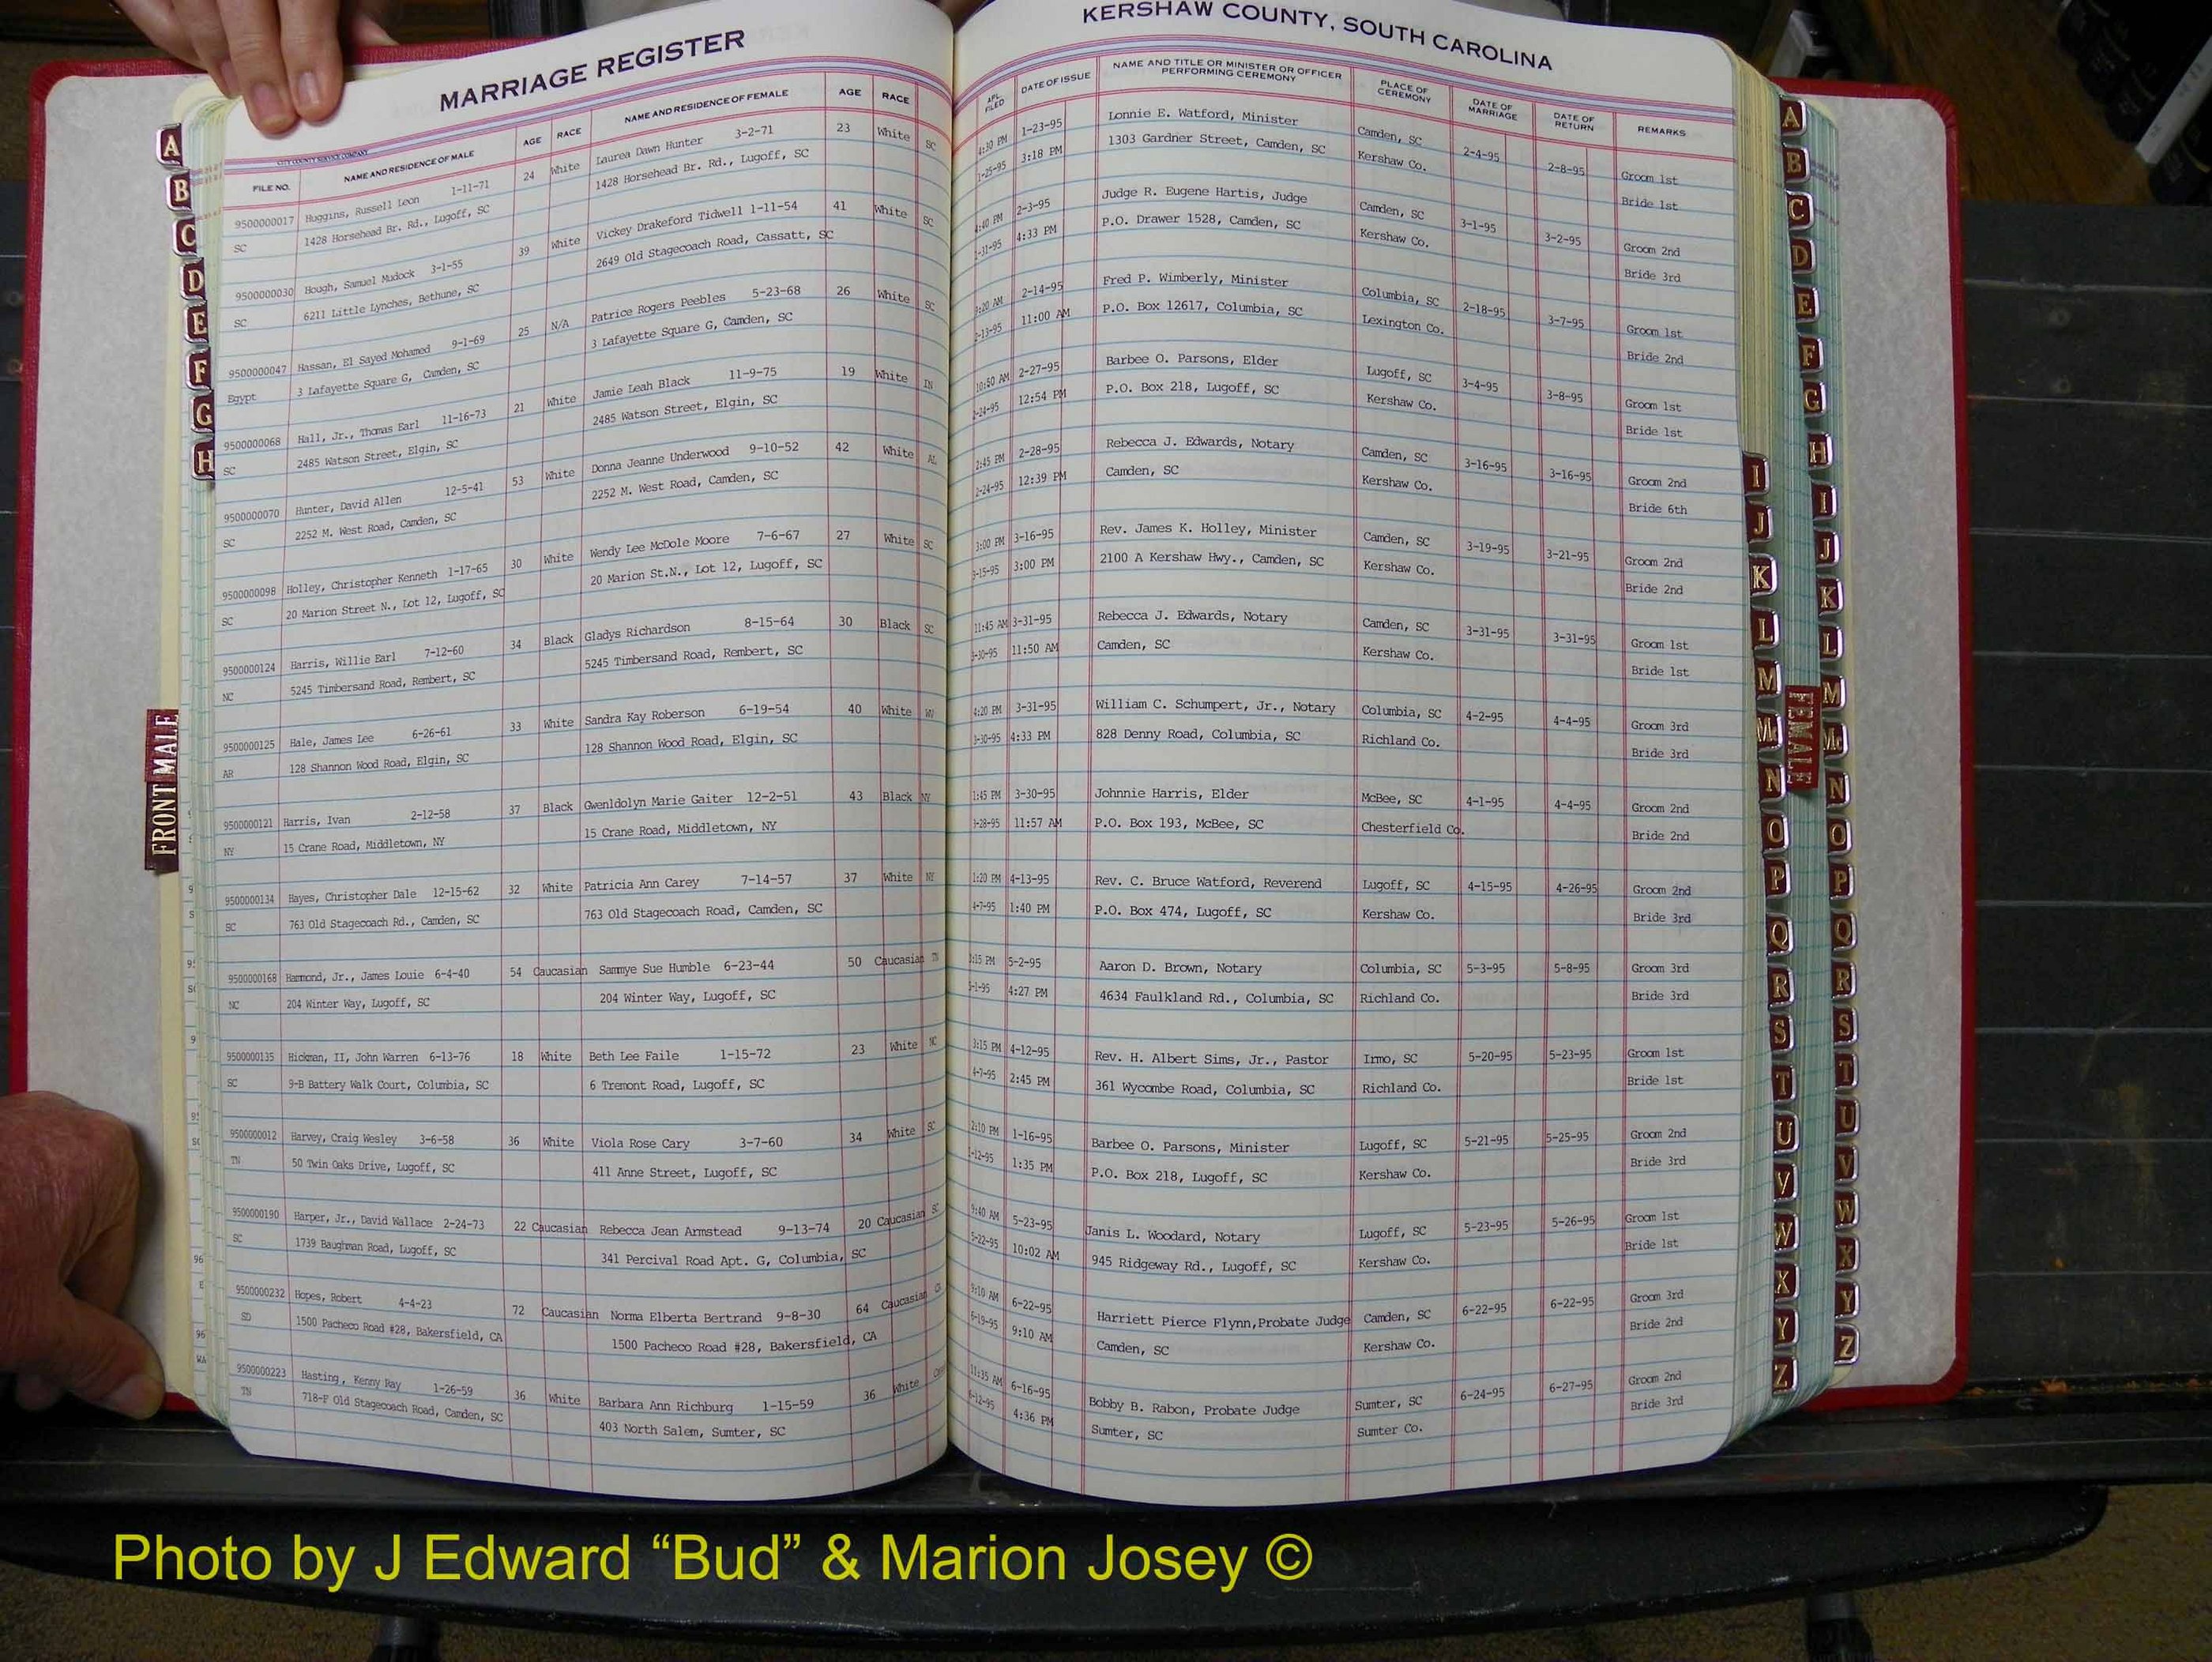 MARRIAGE REGISTER
KERSHAW COUNTY, SOUTH CAROLINA
CITY COUNTY SERVICE COMPANY
FILE NO. NAME AND RESIDENCE OF MALE AGE RACE NAME AND RESIDENCE OF FEMALE AGE RACE APL. FILED DATE OF ISSUE NAME AND TITLE OR MINISTER OR OFFICER PERFORMING CEREMONY PLACE OF CEREMONY DATE OF MARRIAGE DATE OF RETURN REMARKS
9500000017 Huggins, Russell Leon 1-11-71 24 White Laurea Dawn Hunter 3-2-71 23 White SC 4:30 PM 1-23-95 Lonnie E. Watford, Minister Camden, SC 2-4-95 2-8-95 Groom 1st
SC 1428 Horsehead Br. Rd., Lugoff, SC 1428 Horsehead Br. Rd., Lugoff, SC 1-25-95 3:18 PM 1303 Gardner Street, Camden, SC Kershaw Co. Bride 1st
9500000030 Hough, Samuel Mudock 3-1-55 39 White Vickey Drakeford Tidwell 1-11-54 41 White SC 4:40 PM 2-3-95 Judge R. Eugene Hartis, Judge Camden, SC 3-1-95 3-2-95 Groom 2nd
SC 6211 Little Lynches, Bethune, SC 2649 Old Stagecoach Road, Cassatt, SC 4:33 PM P.O. Drawer 1528, Camden, SC Kershaw Co. Bride 3rd
9500000047 Hassan, El Sayed Mohamed 9-1-69 25 N/A Patrice Rogers Peebles 5-23-68 26 White SC 2-14-95 Fred P. Wimberly, Minister Columbia, SC 2-18-95 3-7-95 Groom 1st
Egypt 3 Lafayette Square G, Camden, SC 3 Lafayette Square G, Camden, SC 2-13-95 11:00 AM P.O. Box 12617, Columbia, SC Lexington Co. Bride 2nd
9500000068 Hall, Jr., Thomas Earl 11-16-73 21 White Jamie Leah Black 11-9-75 19 White IN 2-27-95 Barbee O. Parsons, Elder Lugoff, SC 3-4-95 3-8-95 Groom 1st
SC 2485 Watson Street, Elgin, SC 2485 Watson Street, Elgin, SC 2-24-95 12:54 PM P.O. Box 218, Lugoff, SC Kershaw Co. Bride 1st
9500000070 Hunter, David Allen 12-5-41 53 White Donna Jeanne Underwood 9-10-52 42 White AL 2:45 PM 2-28-95 Rebecca J. Edwards, Notary Camden, SC 3-16-95 3-16-95 Groom 2nd
SC 2252 M. West Road, Camden, SC 2252 M. West Road, Camden, SC 2-24-95 12:39 PM Camden, SC Kershaw Co. Bride 6th
9500000098 Holley, Christopher Kenneth 1-17-65 30 White Wendy Lee McDole Moore 7-6-67 27 White SC 3:00 PM 3-16-95 Rev. James K. Holley, Minister Camden, SC 3-19-95 3-21-95 Groom 2nd
SC 20 Marion Street N., Lot 12, Lugoff, SC 20 Marion St.N., Lot 12, Lugoff, SC 3-15-95 3:00 PM 2100 A Kershaw Hwy., Camden, SC Kershaw Co. Bride 2nd
9500000124 Harris, Willie Earl 7-12-60 34 Black Gladys Richardson 8-15-64 30 Black SC 11:45 AM 3-31-95 Rebecca J. Edwards, Notary Camden, SC 3-31-95 3-31-95 Groom 1st
NC 5245 Timbersand Road, Rembert, SC 5245 Timbersand Road, Rembert, SC 3-30-95 11:50 AM Camden, SC Kershaw Co. Bride 1st
9500000125 Hale, James Lee 6-26-61 33 White Sandra Kay Roberson 6-19-54 40 White WV 4:20 PM 3-31-95 William C. Schumpert, Jr., Notary Columbia, SC 4-2-95 4-4-95 Groom 3rd
AR 128 Shannon Wood Road, Elgin, SC 128 Shannon Wood Road, Elgin, SC 3-30-95 4:33 PM 828 Denny Road, Columbia, SC Richland Co. Bride 3rd
9500000121 Harris, Ivan 2-12-58 37 Black Gwenldolyn Marie Gaiter 12-2-51 43 Black NY 1:45 PM 3-30-95 Johnnie Harris, Elder McBee, SC 4-1-95 4-4-95 Groom 2nd
NY 15 Crane Road, Middletown, NY 15 Crane Road, Middletown, NY 3-28-95 11:57 AM P.O. Box 193, McBee, SC Chesterfield Co. Bride 2nd
9500000134 Hayes, Christopher Dale 12-15-62 32 White Patricia Ann Carey 7-14-57 37 White NY 1:20 PM 4-13-95 Rev. C. Bruce Watford, Reverend Lugoff, SC 4-15-95 4-26-95 Groom 2nd
SC 763 Old Stagecoach Rd., Camden, SC 763 Old Stagecoach Road, Camden, SC 4-7-95 1:40 PM P.O. Box 474, Lugoff, SC Kershaw Co. Bride 3rd
9500000168 Hammond, Jr., James Louie 6-4-40 54 Caucasian Sammye Sue Humble 6-23-44 50 Caucasian TN 3:15 PM 5-2-95 Aaron D. Brown, Notary Columbia, SC 5-3-95 5-8-95 Groom 3rd
NC 204 Winter Way, Lugoff, SC 204 Winter Way, Lugoff, SC 5-1-95 4:27 PM 4634 Faulkland Rd., Columbia, SC Richland Co. Bride 3rd
9500000135 Hickman, II, John Warren 6-13-76 18 White Beth Lee Faile 1-15-72 23 White NC 3:15 PM 4-12-95 Rev. H. Albert Sims, Jr., Pastor Irmo, SC 5-20-95 5-23-95 Groom 1st
SC 9-B Battery Walk Court, Columbia, SC 6 Tremont Road, Lugoff, SC 4-7-95 2:45 PM 361 Wycombe Road, Columbia, SC Richland Co. Bride 1st
9500000012 Harvey, Craig Wesley 3-6-58 36 White Viola Rose Cary 3-7-60 34 White SC 2:10 PM 1-16-95 Barbee O. Parsons, Minister Lugoff, SC 5-21-95 5-25-95 Groom 2nd
TN 50 Twin Oaks Drive, Lugoff, SC 411 Anne Street, Lugoff, SC 1-12-95 1:35 PM P.O. Box 218, Lugoff, SC Kershaw Co. Bride 3rd
9500000190 Harper, Jr., David Wallace 2-24-73 22 Caucasian Rebecca Jean Armstead 9-13-74 20 Caucasian SC 9:40 AM 5-23-95 Janis L. Woodard, Notary Lugoff, SC 5-23-95 5-26-95 Groom 1st
SC 1739 Baughman Road, Lugoff, SC 341 Percival Road Apt. G, Columbia, SC 5-22-95 10:02 AM 945 Ridgeway Rd., Lugoff, SC Kershaw Co. Bride 1st
9500000232 Hopes, Robert 4-4-23 72 Caucasian Norma Elberta Bertrand 9-8-30 64 Caucasian 9:10 AM 6-22-95 Harriett Pierce Flynn,Probate Judge Camden, SC 6-22-95 6-22-95 Groom 3rd
SD 1500 Pacheco Road #28, Bakersfield, CA 1500 Pacheco Road #28, Bakersfield, CA 6-19-95 9:10 AM Camden, SC Kershaw Co. Bride 2nd
9500000223 Hasting, Kenny Ray 1-26-59 36 White Barbara Ann Richburg 1-15-59 36 White 11:35 AM 6-16-95 Bobby B. Rabon, Probate Judge Sumter, SC 6-24-95 6-27-95 Groom 2nd
TN 718-F Old Stagecoach Road, Camden, SC 403 North Salem, Sumter, SC 6-12-95 4:36 PM Sumter, SC Sumter Co. Bride 3rd
A
B
C
D
E
F
G
H
FRONT MALE
I
J
K
L
M
Mc
N
O
P
Q
R
S
T
U
V
W
X
Y
Z
FEMALE
A
B
C
D
E
F
G
H
I
J
K
L
M
Mc
N
O
P
Q
R
S
T
U
V
W
X
Y
Z
Photo by J Edward “Bud” & Marion Josey ©